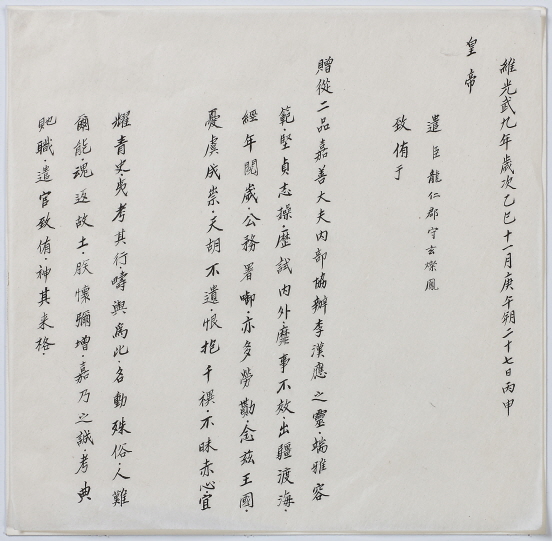 維光武九年歲次乙巳十一月庚午朔二十七日丙申
皇帝
遣臣龍仁郡守玄燦鳳
致侑于
贈從二品嘉善大夫內部協辦李漢應之靈·端雅容
範·堅貞志操·歷試內外·靡事不效·出疆渡海·
經年閱歲·公務署啣·亦多勞勩·念玆王國·
憂虞成祟·天胡不遺·恨抱千禩·不昧赤心·宜
耀青史·夷考其行·疇與爲比·名動殊俗·人難
爾能·魂返故土·朕懷彌增·嘉乃之誠·考典
貤職·遣官致侑·神其來格·